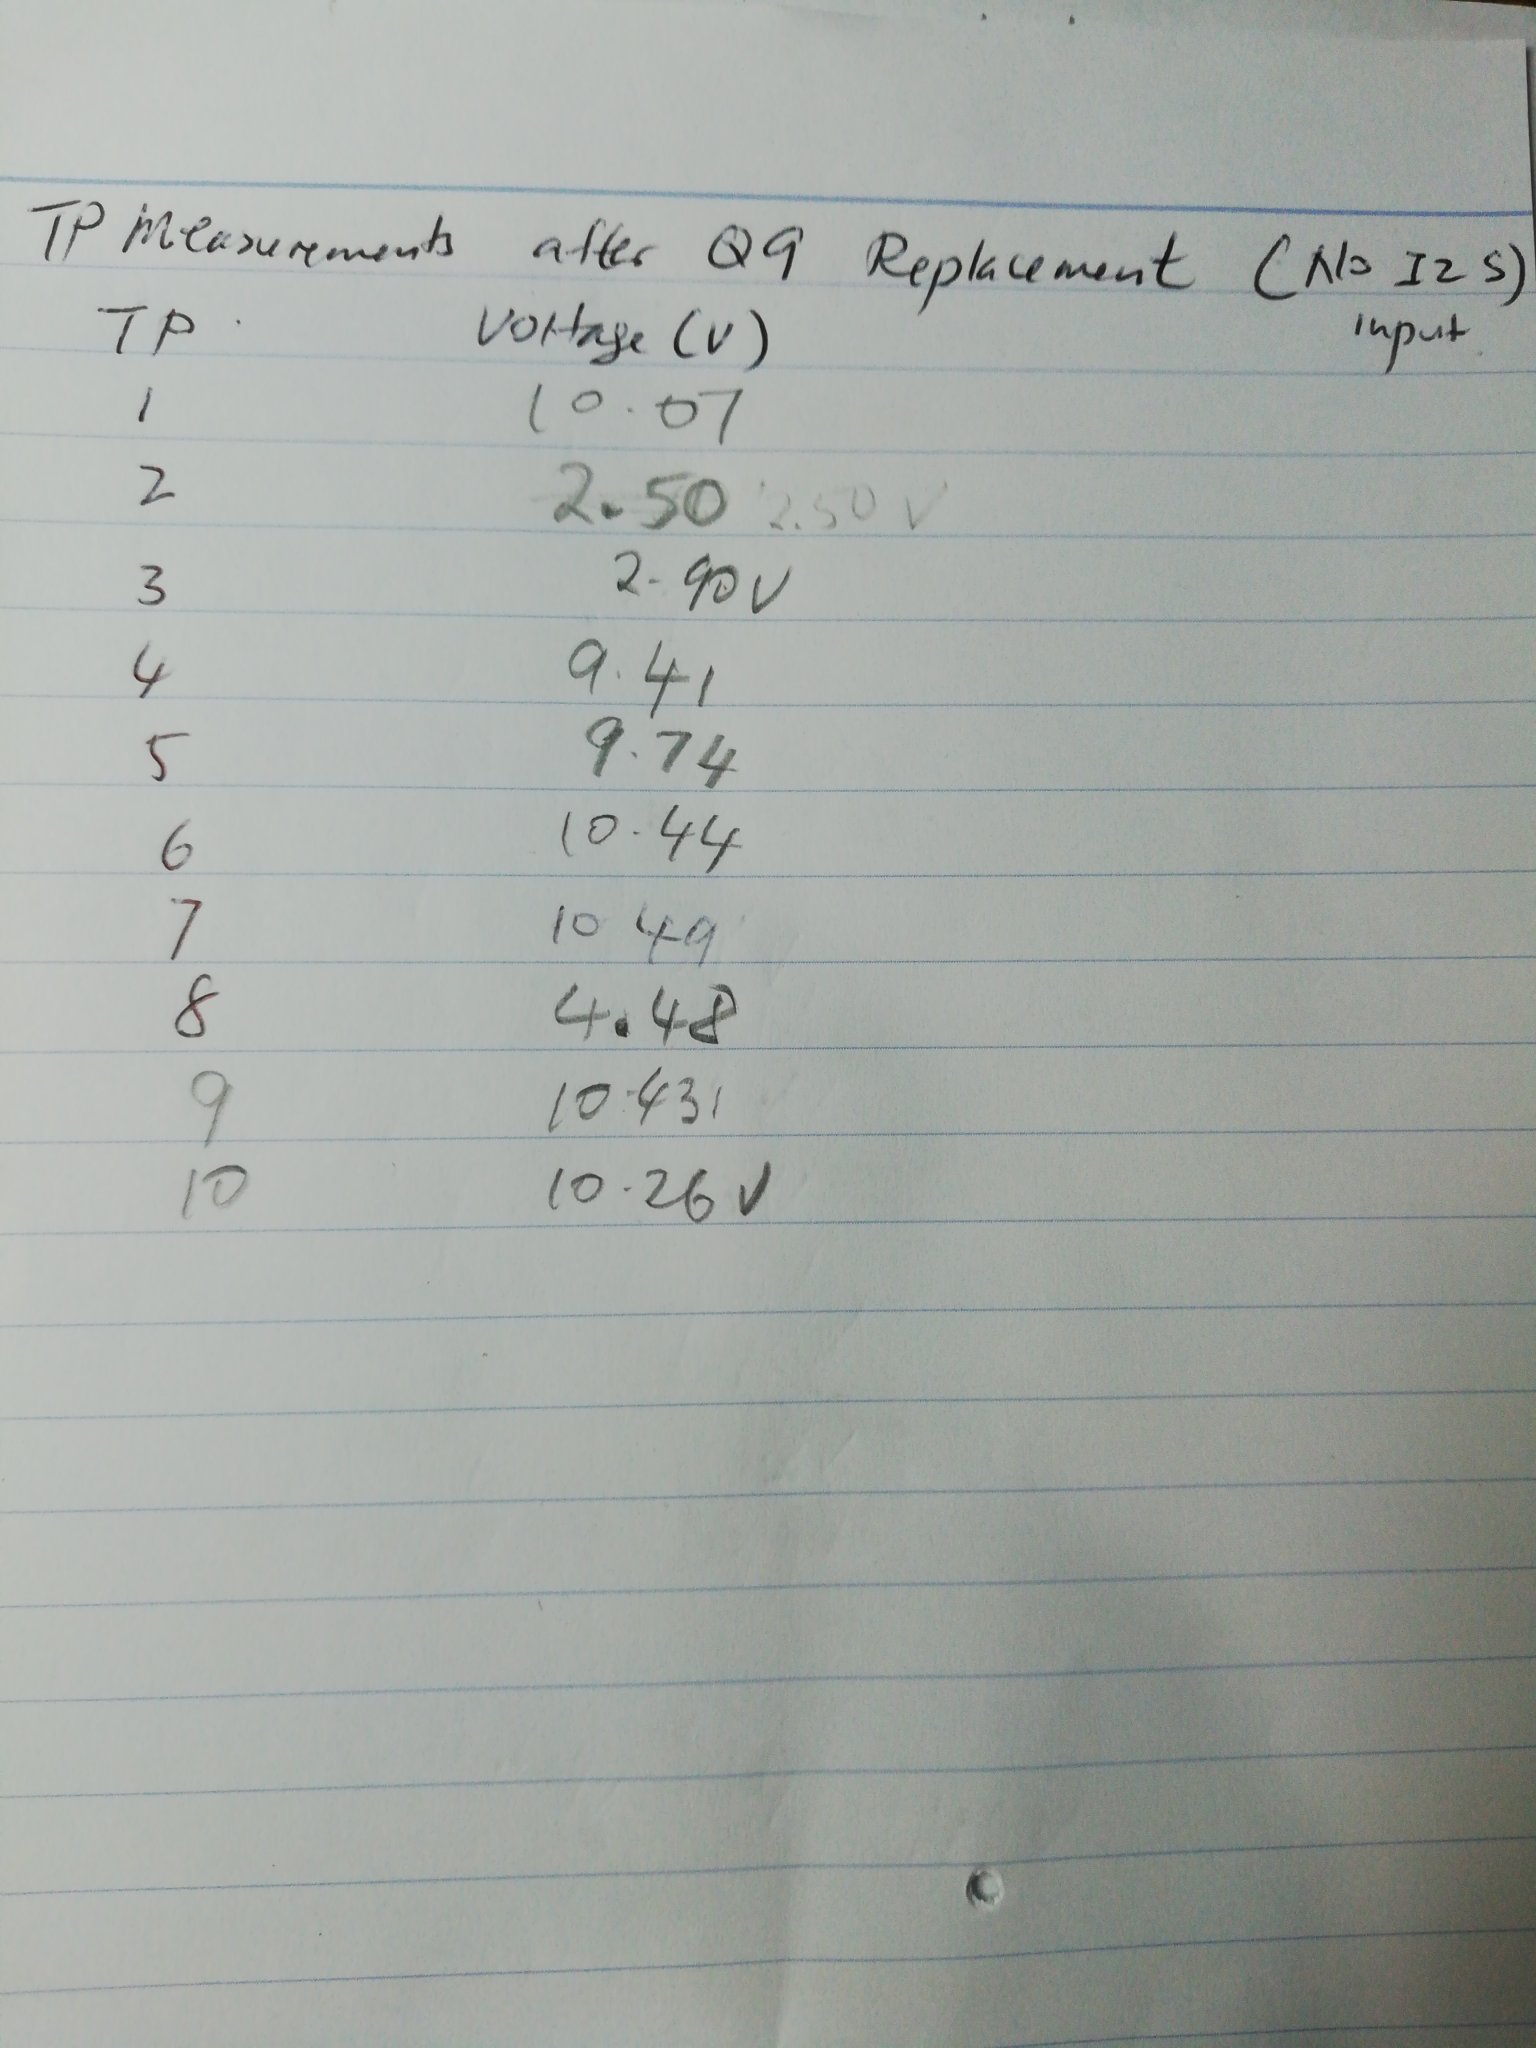 TP Measurements after Q9 Replacement (No I2S)
input
TP Voltage (V)
1 10.07
2 2.50 2.50 V
3 2.90V
4 9.41
5 9.74
6 10.44
7 10 49
8 4.48
9 10.431
10 10.26 V